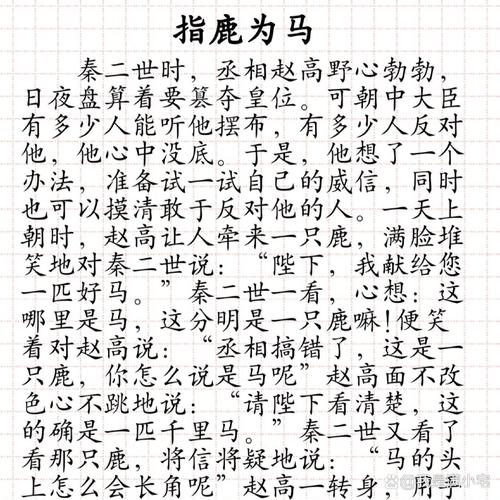 指鹿为马
秦二世时，丞相赵高野心勃勃，
日夜盘算着要篡夺皇位。可朝中大臣
有多少人能听他摆布，有多少人反对
他，他心中没底。于是，他想了一个
办法，准备试一试自己的威信，同时
也可以摸清敢于反对他的人。一天上
朝时，赵高让人牵来一只鹿，满脸堆
笑地对秦二世说：“陛下，我献给您
一匹好马。”秦二世一看，心想：这
哪里是马，这分明是一只鹿嘛!便笑
着对赵高说：“丞相搞错了，这是一
只鹿，你怎么说是马呢”赵高面不改
色心不跳地说：“请陛下看清楚，这
的确是一匹千里马。”秦二世又看了
看那只鹿，将信将疑地说：“马的头
上怎么会长角呢”赵高一转身，用手